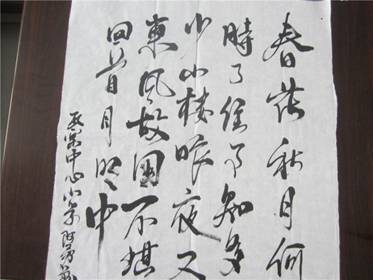 春花秋月何
時了往事知多
少小楼昨夜又
東风故国不堪
回首月明中
中心小学